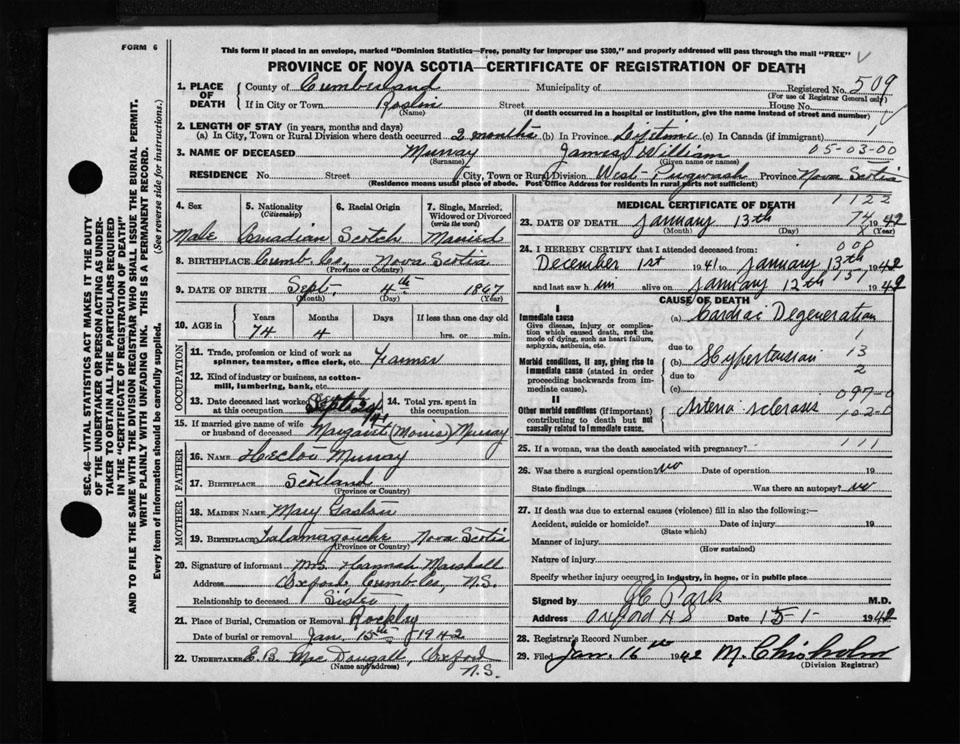 FORM 6
This form if placed in an envelope, marked "Dominion Statistics—Free, penalty for improper use $300," and properly addressed will pass through the mail "FREE"
PROVINCE OF NOVA SCOTIA—CERTIFICATE OF REGISTRATION OF DEATH
SEC. 46—VITAL STATISTICS ACT MAKES IT THE DUTY
OF THE UNDERTAKER OR PERSON ACTING AS UNDER-
TAKER TO OBTAIN ALL THE PARTICULARS REQUIRED
IN THE "CERTIFICATE OF REGISTRATION OF DEATH"
AND TO FILE THE SAME WITH THE DIVISION REGISTRAR WHO SHALL ISSUE THE BURIAL PERMIT.
WRITE PLAINLY WITH UNFADING INK. THIS IS A PERMANENT RECORD.
Every item of information should be carefully supplied. (See reverse side for instructions.)
1. PLACE OF DEATH County of Cumberland Municipality of Registered No. 509
(For use of Registrar General only)
If in City or Town Roslin Street House No.
(Name) (If death occurred in a hospital or institution, give the name instead of street and number)
2. LENGTH OF STAY (in years, months and days)
(a) In City, Town or Rural Division where death occurred 2 months (b) In Province Lifetime (c) In Canada (if immigrant)
3. NAME OF DECEASED Murray James William 05-03-00
(Surname) (Given name or names)
RESIDENCE No. Street City, Town or Rural Division West Pugwash Province Nova Scotia
(Residence means usual place of abode. Post Office Address for residents in rural parts not sufficient)
4. Sex 5. Nationality (Citizenship) 6. Racial Origin 7. Single, Married, Widowed or Divorced (write the word)
Male Canadian Scotch Married
8. BIRTHPLACE Cumb. Co. Nova Scotia
(Province or Country)
9. DATE OF BIRTH Sept. 4th 1867
(Month) (Day) (Year)
10. AGE in Years Months Days If less than one day old
74 4 hrs. or min.
OCCUPATION
11. Trade, profession or kind of work as spinner, teamster, office clerk, etc. Farmer
12. Kind of industry or business, as cotton-mill, lumbering, bank, etc.
13. Date deceased last worked at this occupation 14. Total yrs. spent in this occupation
15. If married give name of wife or husband of deceased Margaret (Morris) Murray
FATHER
16. NAME Hector Murray
17. BIRTHPLACE Scotland
(Province or Country)
MOTHER
18. MAIDEN NAME Mary Gaston
19. BIRTHPLACE Tatamagouche Nova Scotia
(Province or Country)
20. Signature of informant Mrs. Hannah Marshall
Address Oxford, Cumb. Co., N.S.
Relationship to deceased Sister
21. Place of Burial, Cremation or Removal Rockley
Date of burial or removal Jan. 15th 1942
22. UNDERTAKER E.B. MacDougall, Oxford
(Name and address) N.S.
MEDICAL CERTIFICATE OF DEATH 1122
23. DATE OF DEATH January 13th 74 1942
(Month) (Day) (Year)
24. I HEREBY CERTIFY that I attended deceased from: 008
December 1st 1941 to January 13th 1942
and last saw him alive on January 12th 157 1942
CAUSE OF DEATH
I
Immediate cause (a) Cardiac Degeneration
Give disease, injury or complication which caused death, not the mode of dying, such as heart failure, asphyxia, asthenia, etc.
due to
Morbid conditions, if any, giving rise to immediate cause (stated in order proceeding backwards from immediate cause). (b) Hypertension 13
due to 2
(c) 097-0
II
Other morbid conditions (if important) contributing to death but not causally related to immediate cause. Arterio sclerosis 102-0
25. If a woman, was the death associated with pregnancy? 111
26. Was there a surgical operation? no Date of operation 19
State findings Was there an autopsy? no
27. If death was due to external causes (violence) fill in also the following:—
Accident, suicide or homicide? Date of injury 19
(State which)
Manner of injury
(How sustained)
Nature of injury
Specify whether injury occurred in industry, in home, or in public place
Signed by Park M.D.
Address Oxford N S Date 15-1- 1942
28. Registrar's Record Number
29. Filed Jan. 16th 1942 M. Chisholm
(Division Registrar)